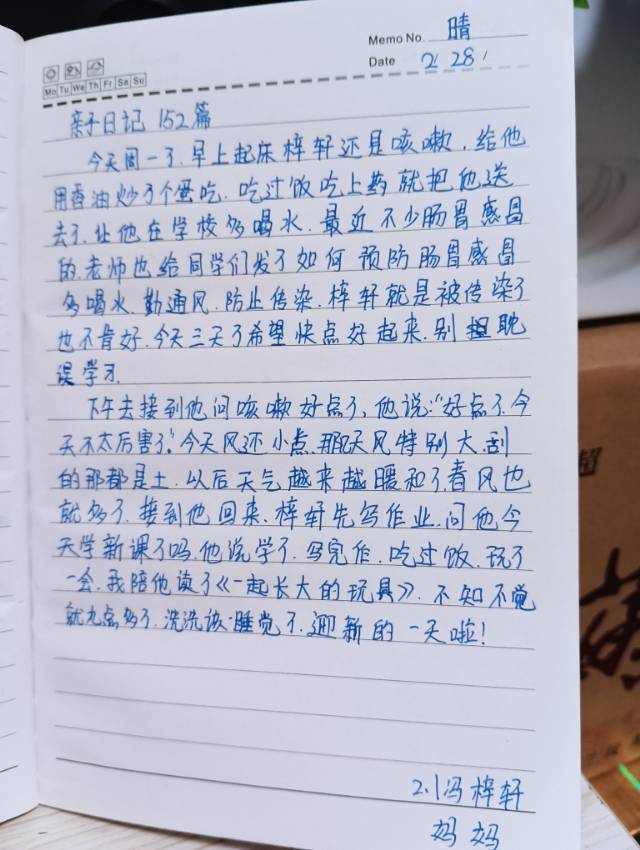 Memo No. 晴
Mo Tu We Th Fr Sa Su
Date 2/ 28/
亲子日记 152篇
今天周一了.早上起床梓轩还是咳嗽.给他
用香油炒了个蛋吃.吃过饭吃上药就把他送
去了.让他在学校多喝水.最近不少肠胃感冒
的.老师也给同学们发了如何预防肠胃感冒
多喝水.勤通风.防止传染.梓轩就是被传染了
也不肯好.今天三天了希望快点好起来.别 耽
误学习.
下午去接到他问咳嗽好点了、他说:“好点了.今
天不太厉害了.”今天风还小点.那几天风特别大.刮
的那都是土.以后天气越来越暖和了.春风也
就多了.接到他回来.梓轩先写作业.问他今
天学新课了吗.他说学了.写完作.吃过饭.玩了
一会.我陪他读了《一起长大的玩具》.不知不觉
就九点多了.洗洗该睡觉了.迎新的一天啦!
2.1冯梓轩
妈妈